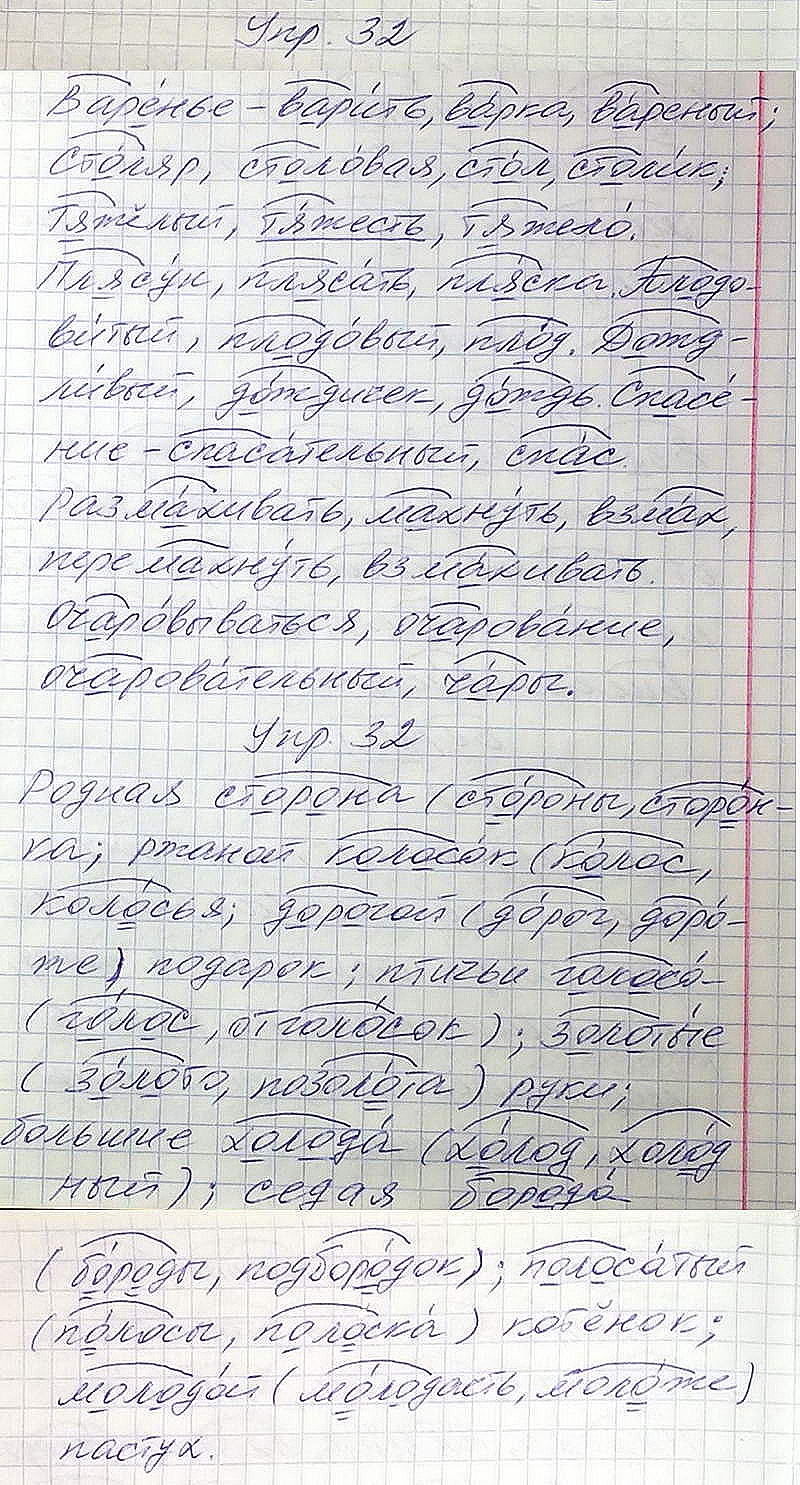 Упр. 32
Варе́нье - вари́ть, ва́рка, ва́реный;
Сто́ляр, столо́вая, сто́л, сто́лик;
Тяжёлый, тя́жесть, тяжело́.
Плясу́н, пляса́ть, пля́ска. Плодо-
ви́тый, плодо́вый, пло́д. Дожд-
ли́вый, до́ждичек, до́ждь. Спасе́-
ние - спаса́тельный, спа́с.
Разма́хивать, махну́ть, взма́х,
перемахну́ть, взма́хивать.
Очаро́вываться, очарова́ние,
очарова́тельный, ча́ры.
Упр. 32
Родная сторона (сто́роны, сторо́н-
ка; ржаной колосо́к (ко́лос,
коло́сья; дорогой (до́рог, доро́-
же) подарок; птичьи голоса́-
(го́лос, отголо́сок); золоты́е
(зо́лото, позоло́та) руки;
большие холода́ (хо́лод, холо́д
ный); седая борода́
(бо́роды, подборо́док); полоса́тый
(по́лосы, полоска́) котёнок;
молодо́й (мо́лодасть, моло́же)
пастух.